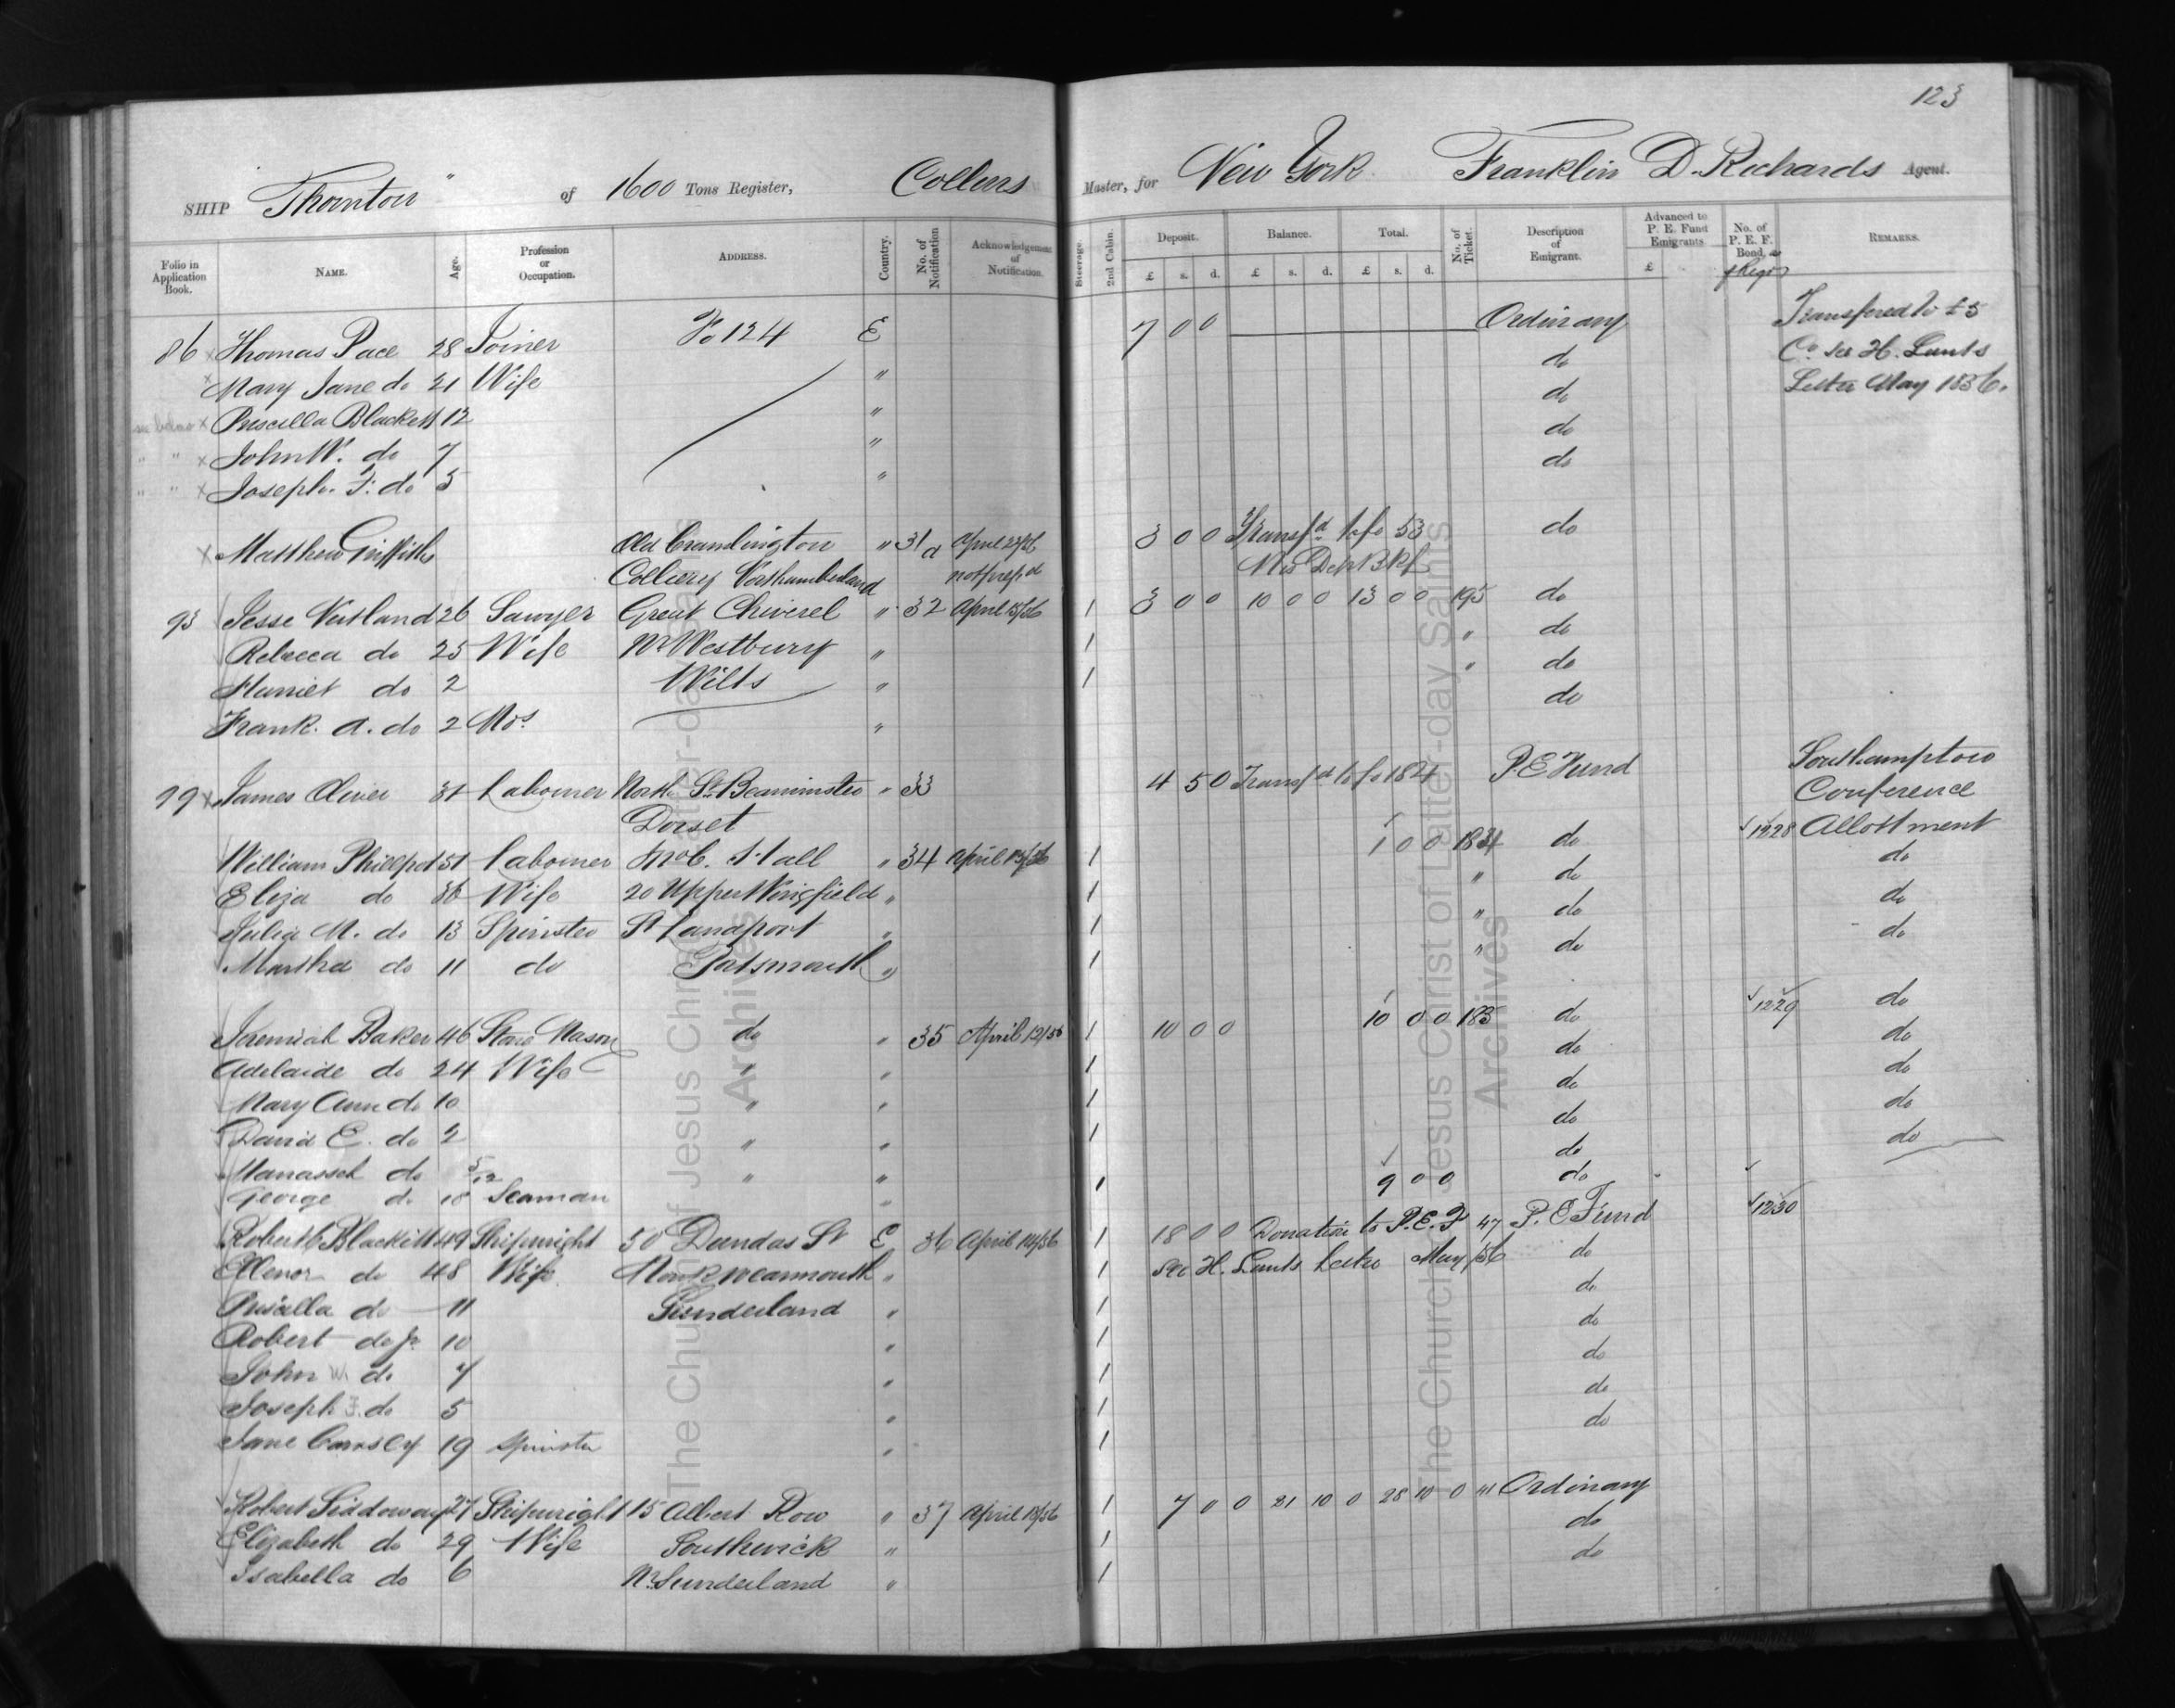 123
SHIP "Thornton" of 1600 Tons Register, Collins Master, for New York Franklin D. Richards Agent.
Folio in Application Book. NAME. Age. Profession or Occupation. ADDRESS. Country. No. of Notification Acknowledgement of Notification. Steerage. 2nd Cabin. Deposit. Balance. Total. No. of Ticket. Description of Emigrant. Advanced to P. E. Fund Emigrants No. of P. E. F. Bond, REMARKS.
£ s. d. £ s. d. £ s. d. £
86 x Thomas Pace 28 Joiner Fo 124 E 7 0 0 Ordinary Transfered to £5
x Mary Jane do 21 Wife " do Co see H. Lunts
x Priscilla Blackett 12 " do Letter May 1856.
" " x John W. do 7 " do
" " x Joseph. F. do 5 " do
x Matthew Griffiths Old Cramlington " 31a April 23/56 3 0 0 Transfd to fo 53 do
Colliery Northumberland not prepd Mis Dep Bk
93 Jesse Nutland 26 Sawyer Great Chiverel " 32 April 15/56 1 3 0 0 10 0 0 13 0 0 195 do
Rebecca do 25 Wife Nr Westbury " 1 " do
Harriet do 2 Wilts " 1 " do
Frank. A. do 2 Mos " do
99 x James Oliver 31 Labourer North St Beaminster " 33 4 5 0 Transfd to fo 182 P.E Fund Southampton
Dorset Conference
William Phillpot 51 Labourer Mob. Hall " 34 April 15/56 1 1 0 0 1834 do 1228 Allottment
Eliza do 36 Wife 20 Upper Wingfield " 1 " do do
Julia M. do 13 Spinster St Landport " 1 " do do
Martha do 11 do Portsmouth " 1 " do do
Jeremiah Baker 46 Stone Mason do " 35 April 12/56 1 10 0 0 10 0 0 1835 do 1229 do
Adelaide do 24 Wife " " 1 do do
Mary Ann do 10 " " 1 do do
David E. do 2 " " 1 do do
Manasseh do 5/12 " " do do
George do 18 Seaman " 1 9 0 0 do
Robert Blackett 49 Shipwright 50 Dundas St E 36 April 14/56 1 18 0 0 Donation to P.E.F 47 P. E Fund 1230
Elenor do 48 Wife Monkwearmouth " 1 see H. Lunts Letter May/56 do
Priscilla do 11 Sunderland " 1 do
Robert do Jr 10 " 1 do
John W. do 7 " 1 do
Joseph F. do 5 " 1 do
Jane 19 Spinster " 1 do
Robert Siddoway 27 Shipwright 15 Albert Row " 37 April 15/56 1 7 0 0 21 10 0 28 10 0 41 Ordinary
Elizabeth do 29 Wife Southwick " 1 do
Isabella do 6 Nr Sunderland " 1 do
The Church of Jesus Christ of Latter-day Saints
Archives
The Church of Jesus Christ of Latter-day Saints
Archives